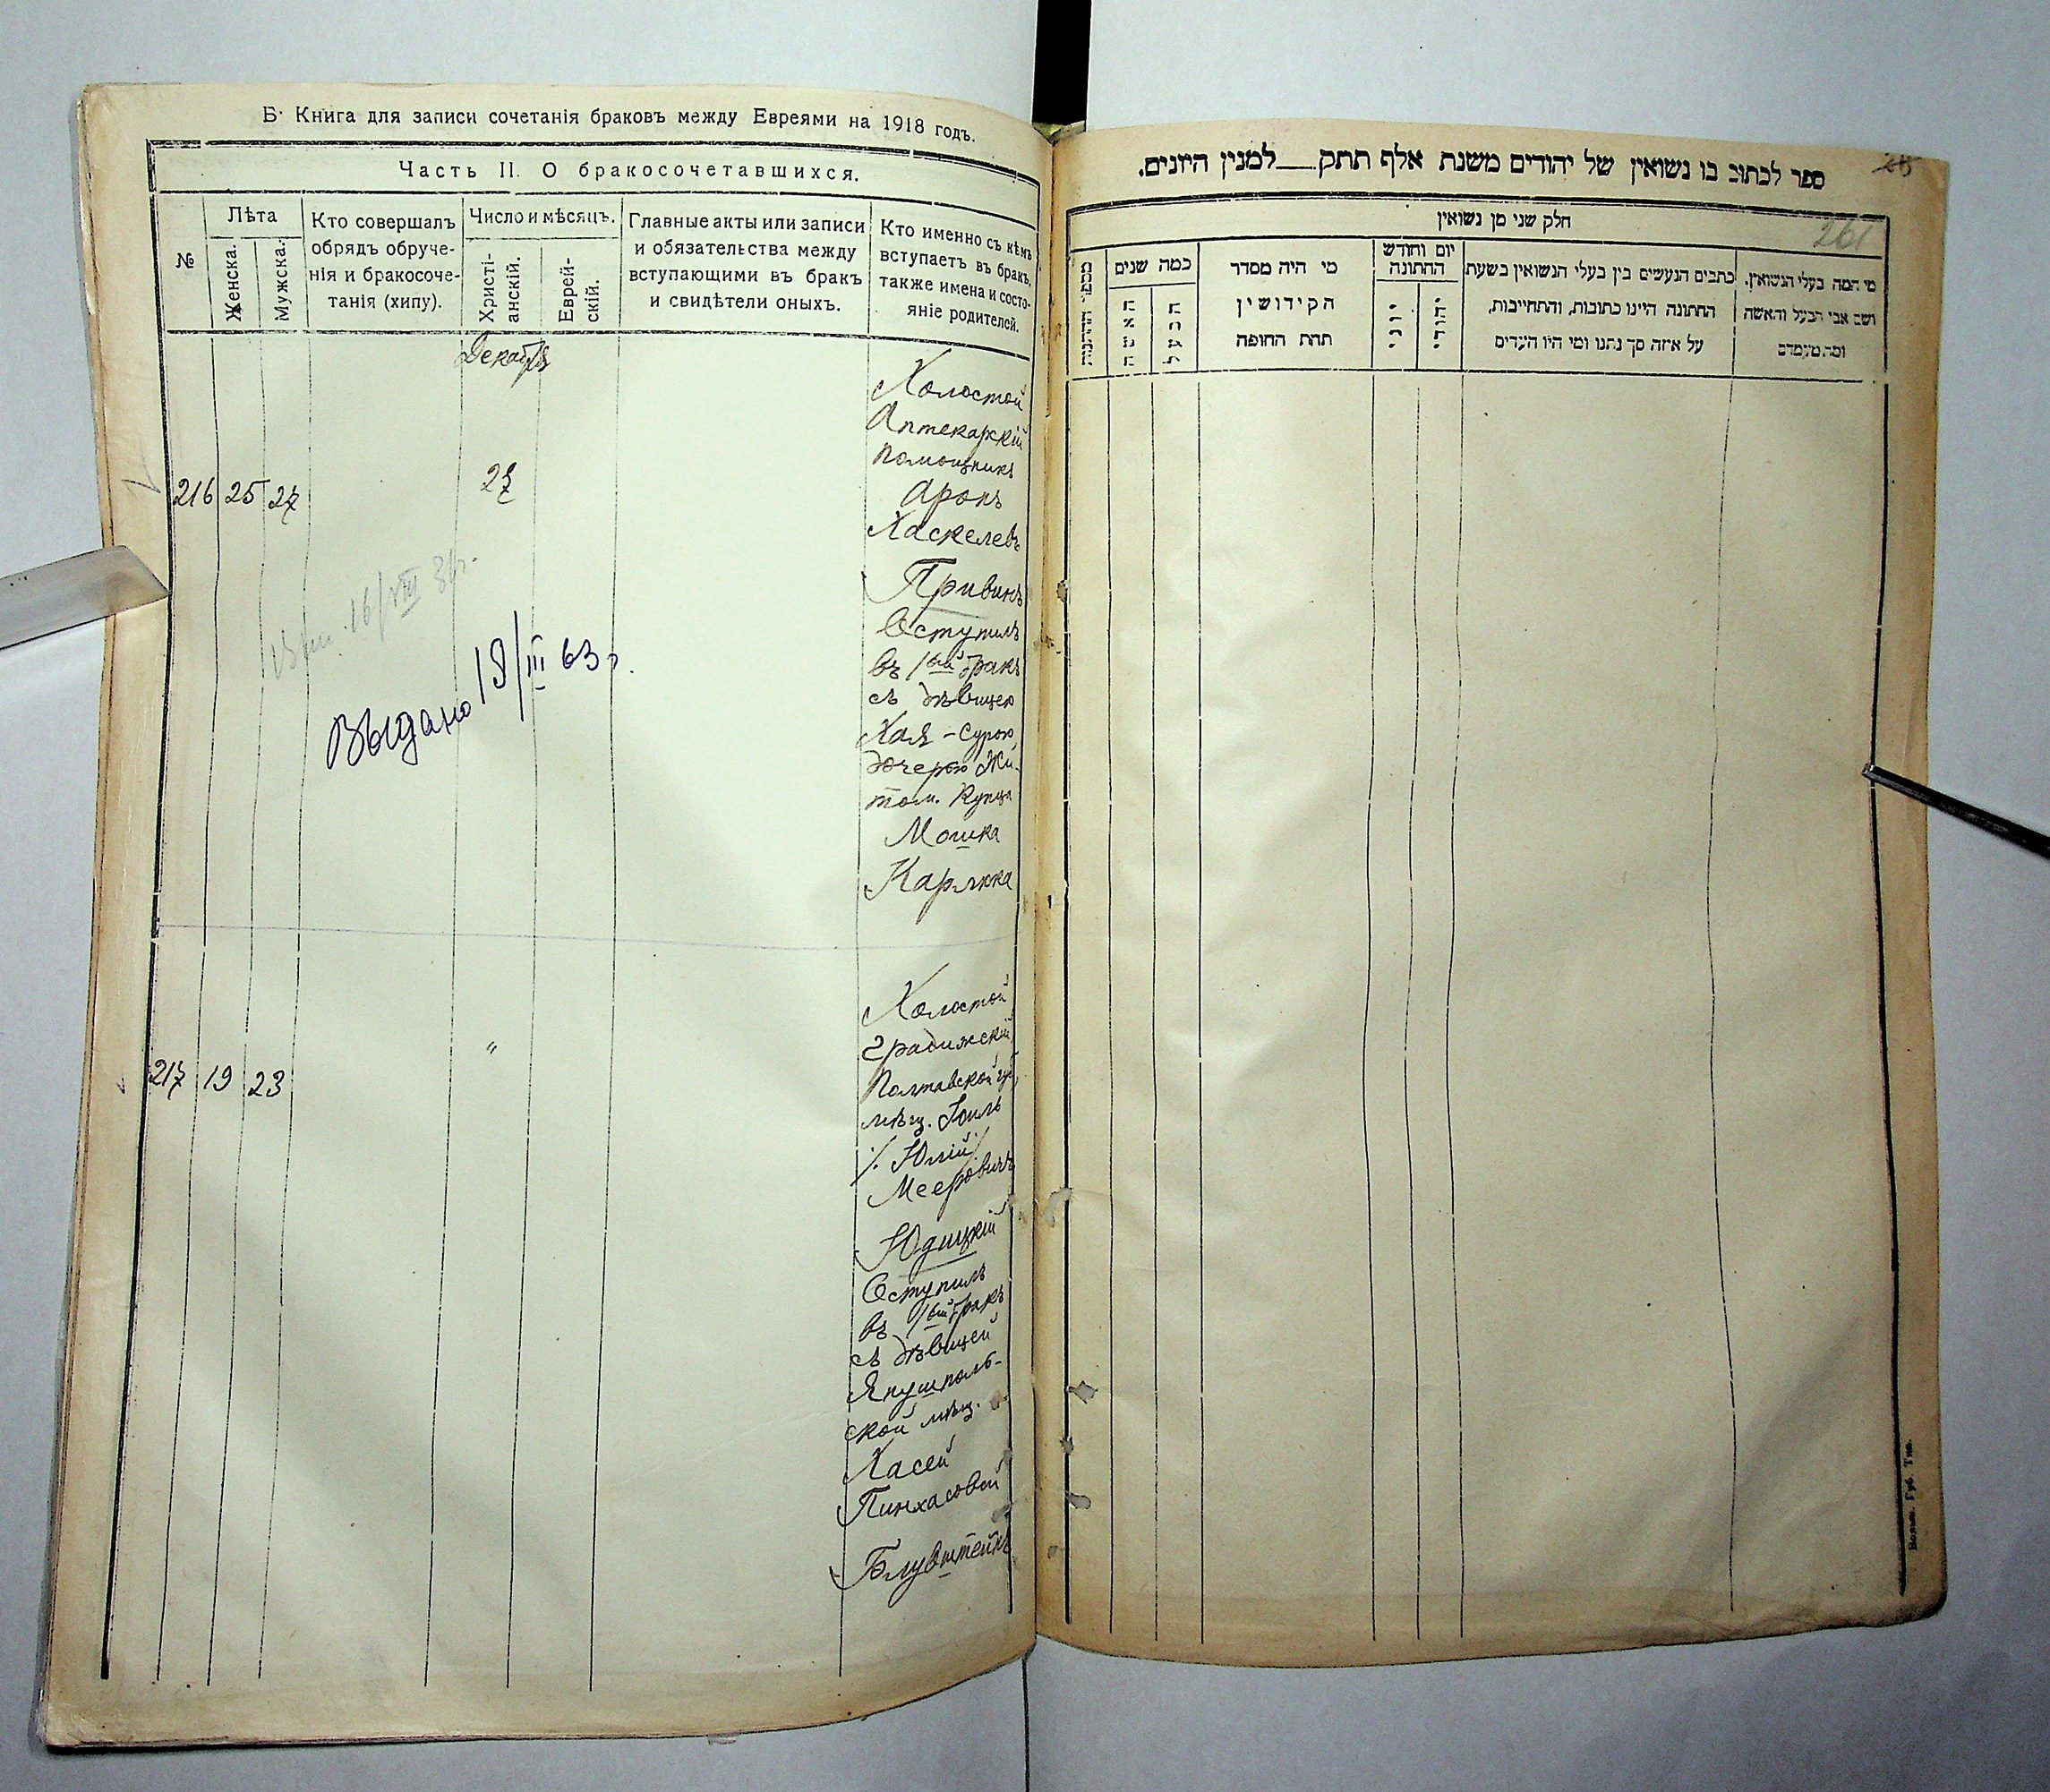 Б. Книга для записи сочетанія браковъ между Евреями на 1918 годъ.
Часть II. О бракосочетавшихся.
№
Лѣта
Женска.
Мужска.
Кто совершалъ
обрядъ обруче-
нія и бракосоче-
танія (хипу).
Число и мѣсяцъ.
Христі-
анскій.
Еврей-
скій.
Главные акты или записи
и обязательства между
вступающими въ бракъ
и свидѣтели оныхъ.
Кто именно съ кѣмъ
вступаетъ въ бракъ,
также имена и состо-
яніе родителей.
Декабря
216 25 27
27
Холостой
Аптекарскій
помощникъ
Аронъ
Хаскелевъ
Привинъ
Вступилъ
въ 1ый бракъ
съ дѣвицею
Хая-Сурою
дочерью Жи-
том. Купца
Мошка
Карлика
16/VIII 31г.
Выдано 19/III 63 г.
217 19 23
"
Холостой
Градижскій
Полтавской губ.
мѣщ. Юиль
/. Юлій /
Мееровичъ
Юдицкій
Вступилъ
въ 1ый бракъ
съ дѣвицей
Янушполь-
ской мѣщ.
Хасей
Пинхасовой
Блувштейнъ
ספר לכתוב בו נשואין של יהודים משנת אלף תתק___למנין היונים.
261
חלק שני מן נשואין
מספר החתונות
כמה שנים
האשה
הבעל
מי היה מסדר
הקידושין
תחת החופה
יום וחודש
החתונה
יוני
יהודי
כתבים הנעשים בין בעלי הנשואין בשעת
החתונה היינו כתובות, והתחייבות,
על איזה סך נתנו ומי היו העדים
מי המה בעלי הנשואין,
ושם אבי הבעל והאשה
ומה מעמדם
Волын. Губ. Тип.